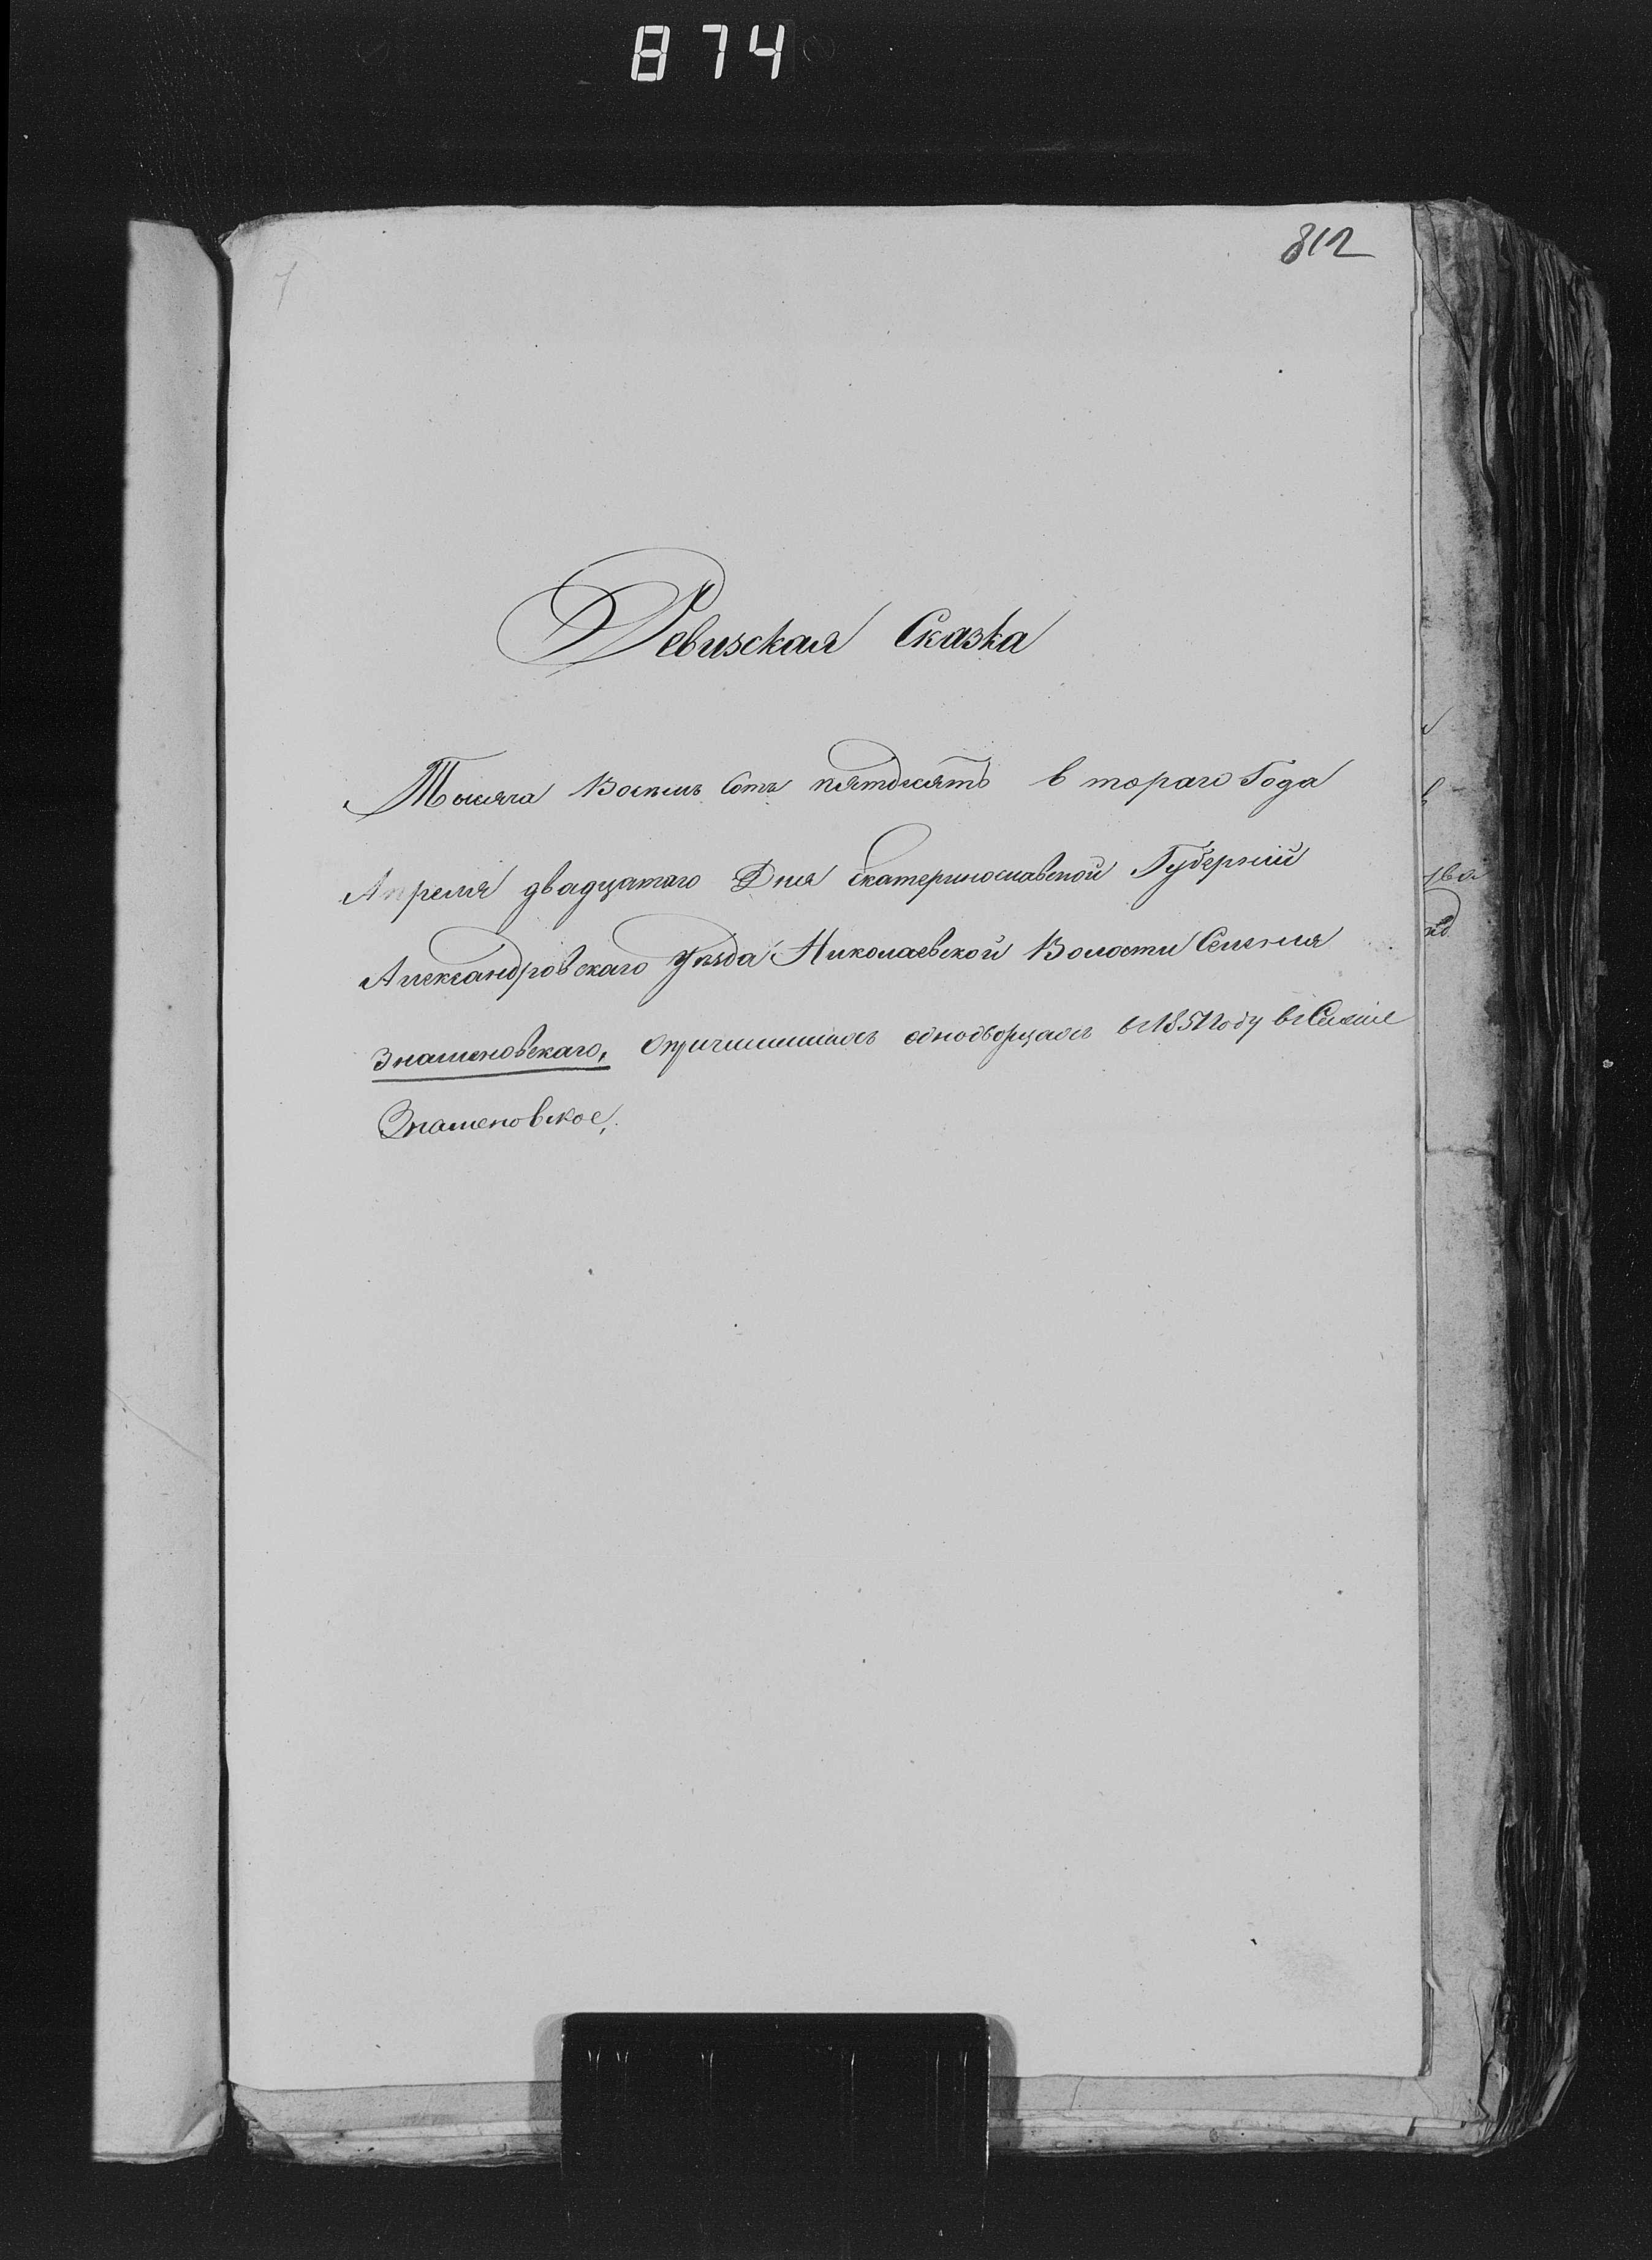 874
812
Ревизская Сказка
Тысяча Восемь Сотъ пятдесятъ втораго Года
Апреля двадцатаго Дня Екатеринославской Губерний
Александровскаго уезда Николаевской Волости Селения
Знаменовскаго, однодворцахъ въ 1851 году въ Селение
Знаменовское,